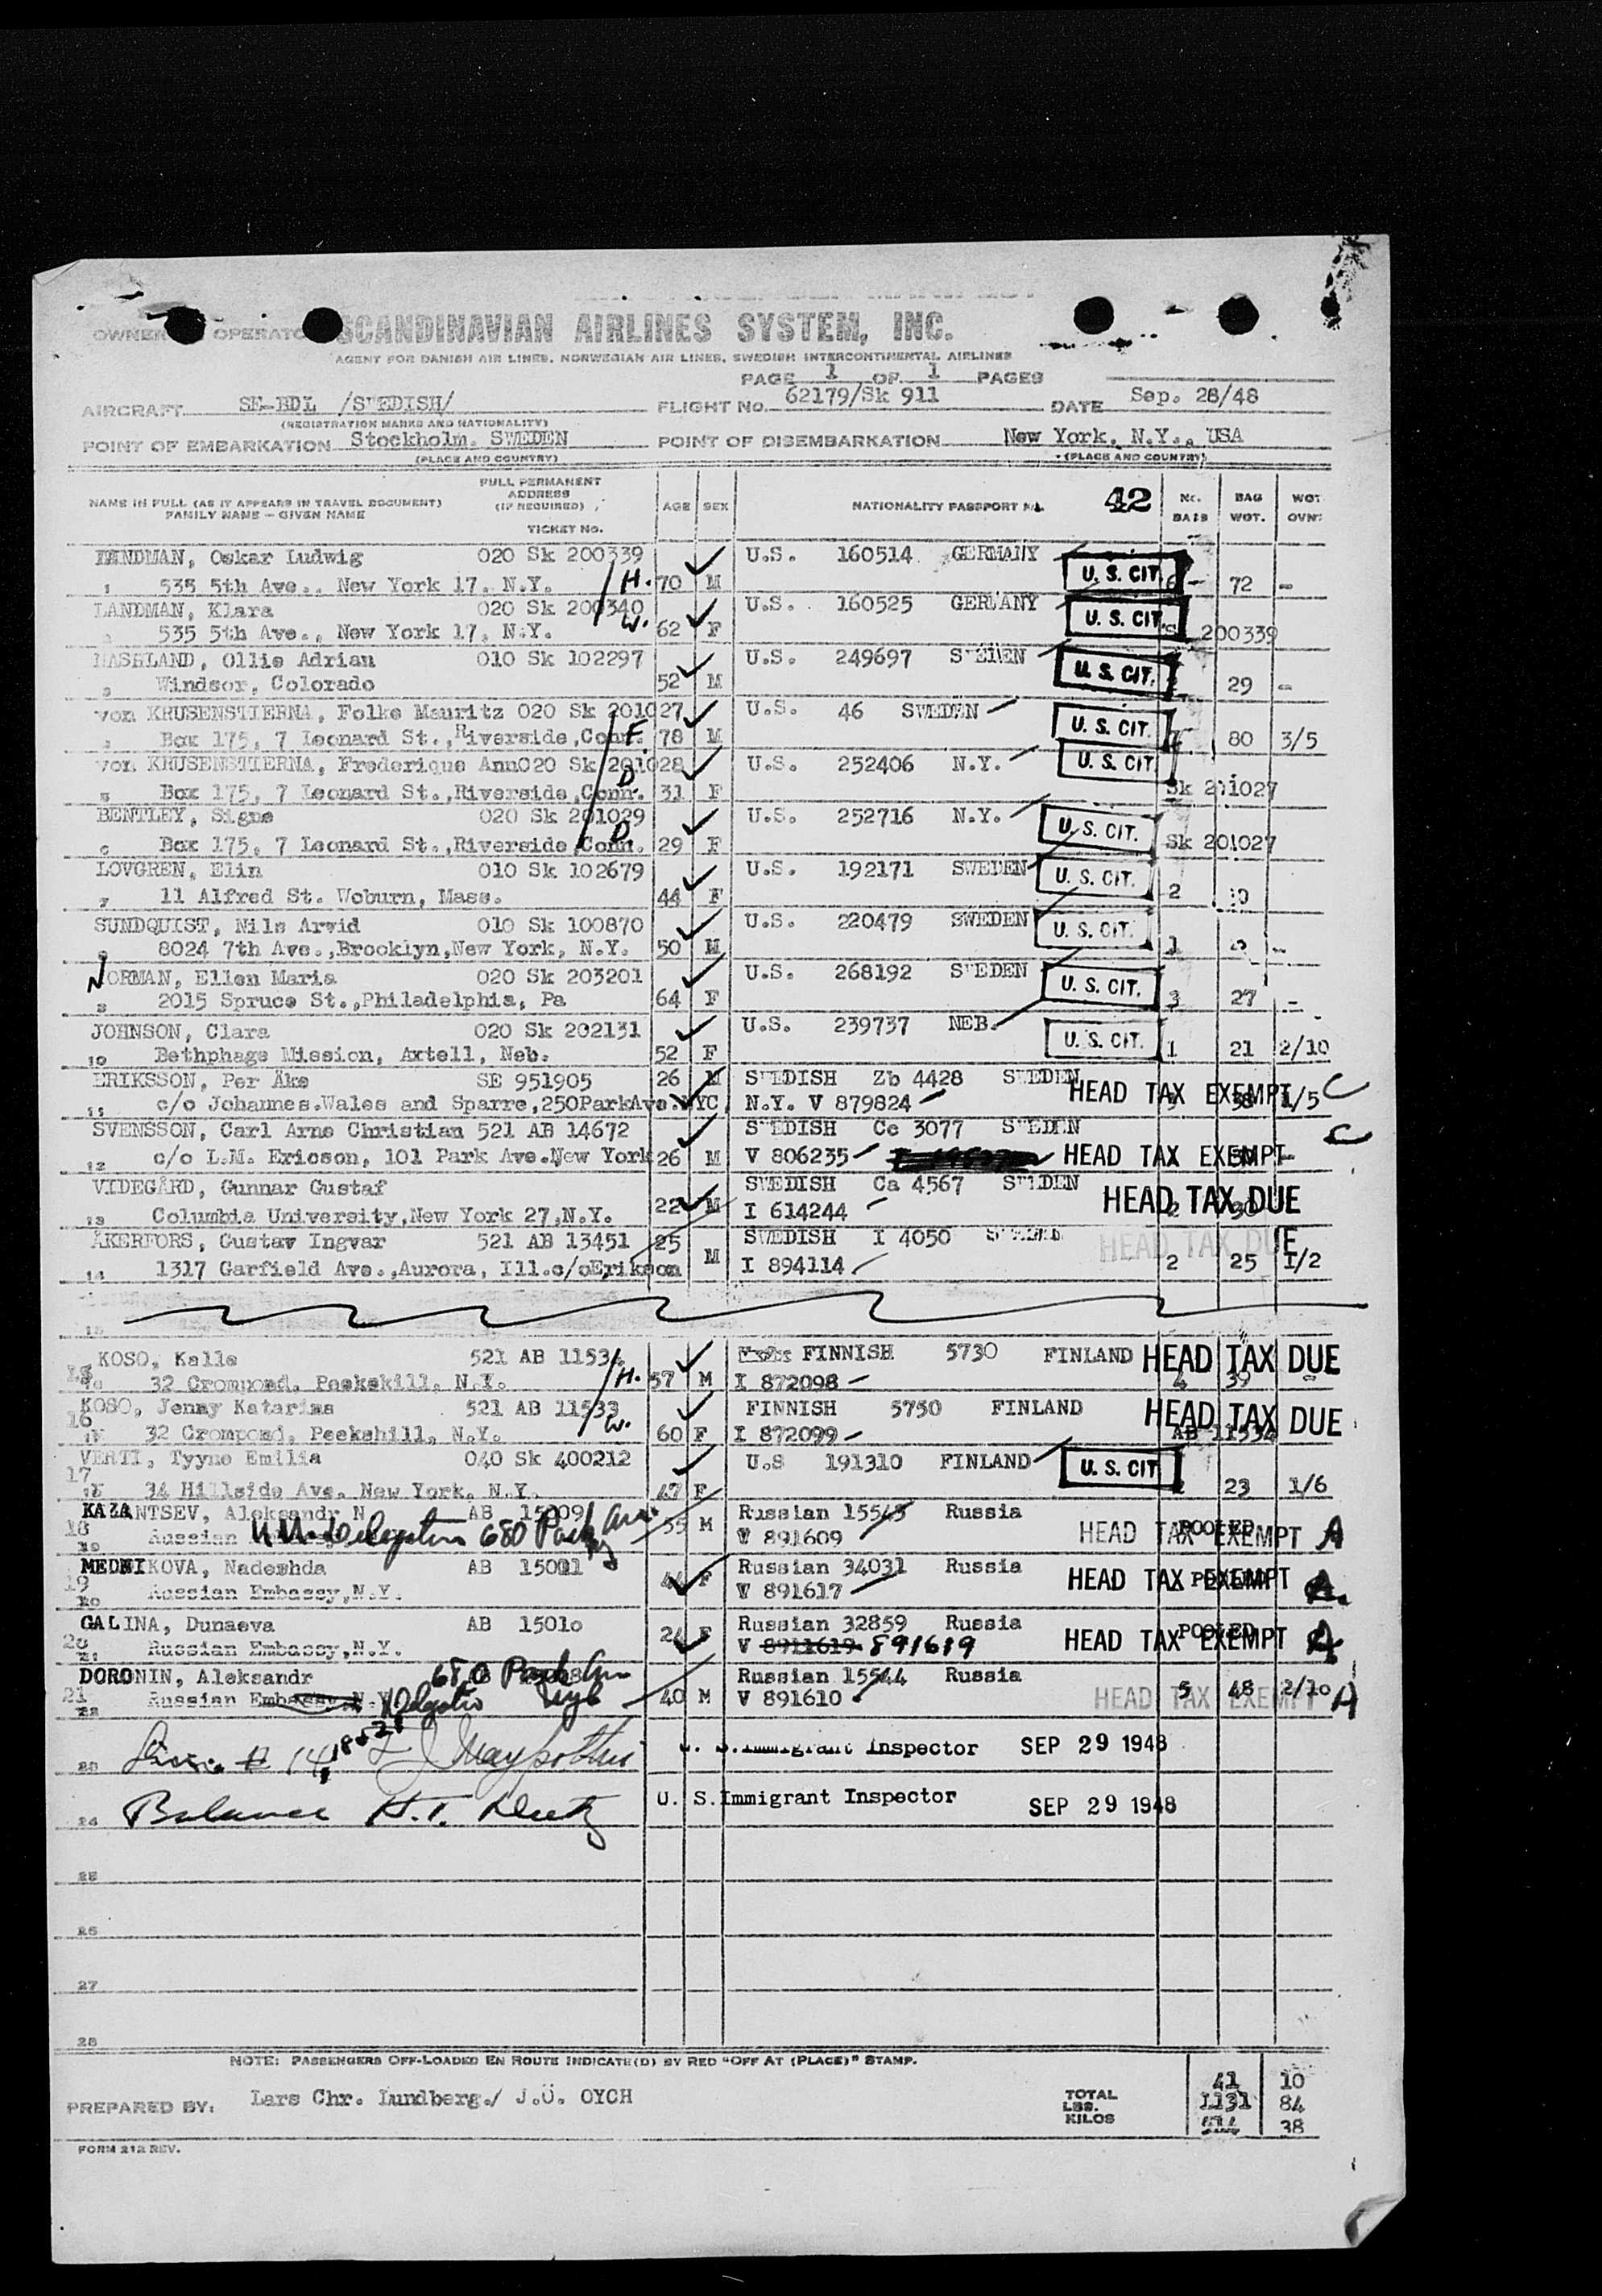 OWNER OPERATO SCANDINAVIAN AIRLINES SYSTEM, INC.
AGENT FOR DANISH AIR LINES, NORWEGIAN AIR LINES, SWEDISH INTERCONTINENTAL AIRLINES
PAGE 1 OF 1 PAGES
AIRCRAFT SE-BDL /SWEDISH/ FLIGHT No. 62179/Sk 911 DATE Sep. 28/48
(REGISTRATION MARKS AND NATIONALITY)
POINT OF EMBARKATION Stockholm. SWEDEN POINT OF DISEMBARKATION New York, N.Y., USA
(PLACE AND COUNTRY) (PLACE AND COUNTRY)
NAME IN FULL (AS IT APPEARS IN TRAVEL DOCUMENT) FAMILY NAME – GIVEN NAME FULL PERMANENT ADDRESS (IF REQUIRED) TICKET No. AGE SEX NATIONALITY PASSPORT No. 42 No. BAGS BAG WGT. WGT. OVN:
LANDMAN, Oskar Ludwig 020 Sk 200339 U.S. 160514 GERMANY U. S. CIT.
1 535 5th Ave., New York 17, N.Y. H. 70 M 6 72 -
LANDMAN, Klara 020 Sk 200340 U.S. 160525 GERMANY U. S. CIT.
535 5th Ave., New York 17, N.Y. W. 62 F 200339
HASHLAND, Ollie Adrian 010 Sk 102297 U.S. 249697 SWEDEN U. S. CIT.
3 Windsor, Colorado 52 M 29 -
von KRUSENSTIERNA, Folke Mauritz 020 Sk 201027 U.S. 46 SWEDEN U. S. CIT.
Box 175, 7 Leonard St., Riverside, Conn. F. 78 M 7 80 3/5
von KRUSENSTIERNA, Frederique Ann 020 Sk 201028 U.S. 252406 N.Y. U. S. CIT
5 Box 175, 7 Leonard St., Riverside, Conn. D. 31 F Sk 201027
BENTLEY, Signe 020 Sk 201029 U.S. 252716 N.Y. U. S. CIT.
Box 175, 7 Leonard St., Riverside, Conn. D. 29 F Sk 201027
LOVGREN, Elin 010 Sk 102679 U.S. 192171 SWEDEN U. S. CIT.
7 11 Alfred St. Woburn, Mass. 44 F 2
SUNDQUIST, Nils Arvid 010 Sk 100870 U.S. 220479 SWEDEN U. S. CIT.
8024 7th Ave., Brooklyn, New York, N.Y. 50 M 1 -
NORMAN, Ellen Maria 020 Sk 203201 U.S. 268192 SWEDEN U. S. CIT.
2015 Spruce St., Philadelphia, Pa 64 F 3 27 -
JOHNSON, Clara 020 Sk 202131 U.S. 239737 NEB. U. S. CIT.
10 Bethphage Mission, Axtell, Neb. 52 F 1 21 2/10
ERIKSSON, Per Åke SE 951905 26 M SWEDISH Zb 4428 SWEDEN HEAD TAX EXEMPT C
11 c/o Johannes.Wales and Sparre, 250ParkAve.NYC, N.Y. V 879824 38 1/5
SVENSSON, Carl Arne Christian 521 AB 14672 SWEDISH Ce 3077 SWEDEN C
12 c/o L.M. Ericson, 101 Park Ave.New York 26 M V 806235 HEAD TAX EXEMPT
VIDEGÅRD, Gunnar Gustaf SWEDISH Ca 4567 SWEDEN HEAD TAX DUE
13 Columbia University, New York 27, N.Y. 22 M I 614244 2 30
ÅKERFORS, Gustav Ingvar 521 AB 13451 25 SWEDISH I 4050 SWEDEN HEAD TAX DUE
14 1317 Garfield Ave., Aurora, Ill.c/oErikson M I 894114 2 25 1/2
15
KOSO, Kalle 521 AB 11534 FINNISH 5730 FINLAND HEAD TAX DUE
32 Crompond, Peekskill, N.Y. H. 57 M I 872098 4 39 -
KOSO, Jenny Katarina 521 AB 11533 FINNISH 5750 FINLAND HEAD TAX DUE
16 32 Crompond, Peekshill, N.Y. W. 60 F I 872099 AB 11534
VERTI, Tyyne Emilia 040 Sk 400212 U.S 191310 FINLAND U. S. CIT
17 34 Hillside Ave. New York. N.Y. 47 F 23 1/6
KAZANTSEV, Aleksandr N AB 15009 Russian 15543 Russia
18 Russian U N Delegation 680 Park Ave. 35 M V 891609 HEAD TAX EXEMPT POOLED A
MEDNIKOVA, Nadeshda AB 15011 Russian 34031 Russia
19 Russian Embassy, N.Y. 44 F V 891617 HEAD TAX EXEMPT POOLED A
GALINA, Dunaeva AB 15010 Russian 32859 Russia
20 Russian Embassy, N.Y. 24 F V 8911619 891619 HEAD TAX EXEMPT POOLED A
DORONIN, Aleksandr 680 Park Ave Russian 15544 Russia
21 Russian Embassy N.Y. Delegation NYC 40 M V 891610 HEAD TAX EXEMPT 5 48 2/10 A
23 # 14, 18 & 21 U. S. Immigrant Inspector SEP 29 1948
24 Balance U. S. Immigrant Inspector SEP 29 1948
25
26
27
28
NOTE: PASSENGERS OFF-LOADED EN ROUTE INDICATE(D) BY RED "OFF AT (PLACE)" STAMP.
PREPARED BY: Lars Chr. Lundberg./ J.Ö. OYCH
TOTAL 41 10
LBS. 1131 84
KILOS 514 38
FORM 212 REV.